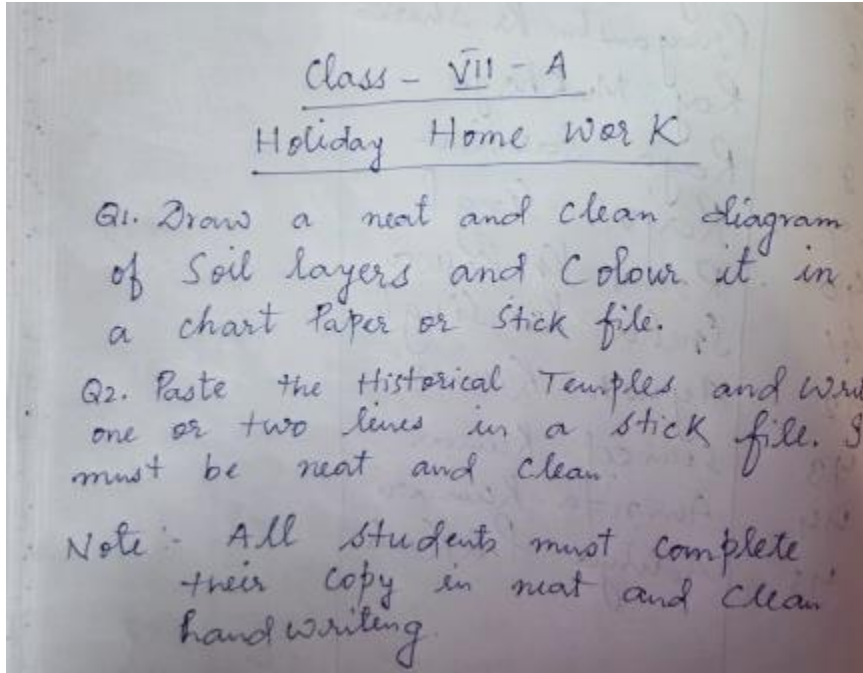 Class - VII - A
Holiday Home Work
Q1. Draw a neat and clean diagram
of Soil layers and Colour it in
a chart Paper or Stick file.
Q2. Paste the Historical Temples and
one or two lines in a stick file.
must be neat and clean.
Note :- All students must complete
their copy in neat and clean
handwriting.